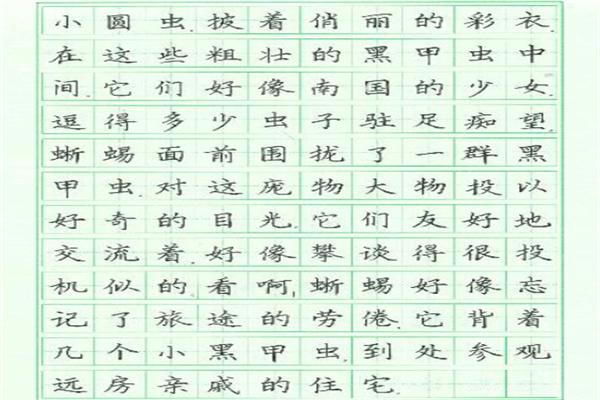 小圆虫,披着俏丽的彩衣.
在这些粗壮的黑甲虫中
间.它们好像南国的少女.
逗得多少虫子驻足痴望.
蜥蜴面前围拢了一群黑
甲虫.对这庞物大物投以
好奇的目光.它们友好地
交流着.好像攀谈得很投
机似的看啊,蜥蜴好像忘
记了旅途的劳倦.它背着
几个小黑甲虫.到处参观
远房亲戚的住宅.